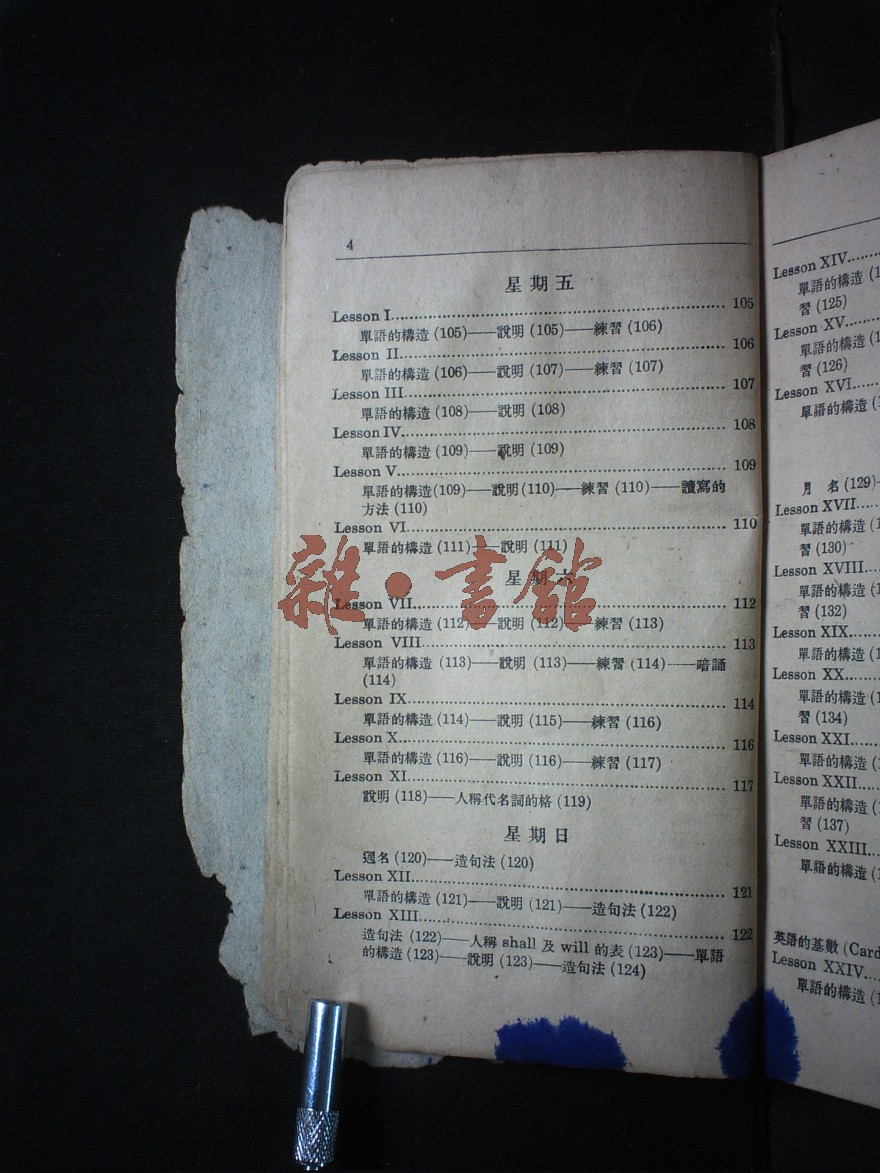 4
星期五
Lesson I........ 105
單語的構造 (105)——說明 (105)——練習 (106)
Lesson II........ 106
單語的構造 (106)——說明 (107)——練習 (107)
Lesson III........ 107
單語的構造 (108)——說明 (108)
Lesson IV........ 108
單語的構造 (109)——說明 (109)
Lesson V........ 109
單語的構造(109)——說明(110)——練習 (110)——讀寫的
方法 (110)
Lesson VI........ 110
單語的構造 (111)——說明 (111)
雜·書館
星期六
Lesson VII........ 112
單語的構造 (112)——說明 (112)——練習 (113)
Lesson VIII........ 113
單語的構造 (113)——說明 (113)——練習 (114)——暗誦
(114)
Lesson IX........ 114
單語的構造 (114)——說明 (115)——練習 (116)
Lesson X........ 116
單語的構造 (116)——說明 (116)——練習 (117)
Lesson XI........ 117
說明 (118)——人稱代名詞的格 (119)
星期日
週名 (120)——造句法 (120)
Lesson XII........ 121
單語的構造 (121)——說明 (121)——造句法 (122)
Lesson XIII........ 122
造句法 (122)——人稱 shall 及 will 的表 (123)——單語
的構造 (123)——說明 (123)——造句法 (124)
Lesson XIV........
單語的構造
習 (125)
Lesson XV........
單語的構造
習 (126)
Lesson XVI........
單語的構造
月名 (129)
Lesson XVII........
單語的構造
習 (130)
Lesson XVIII........
單語的構造
習 (132)
Lesson XIX........
單語的構造
Lesson XX........
單語的構造
習 (134)
Lesson XXI........
單語的構造
Lesson XXII........
單語的構造
習 (137)
Lesson XXIII........
單語的構造
英語的基數 (Card
Lesson XXIV........
單語的構造